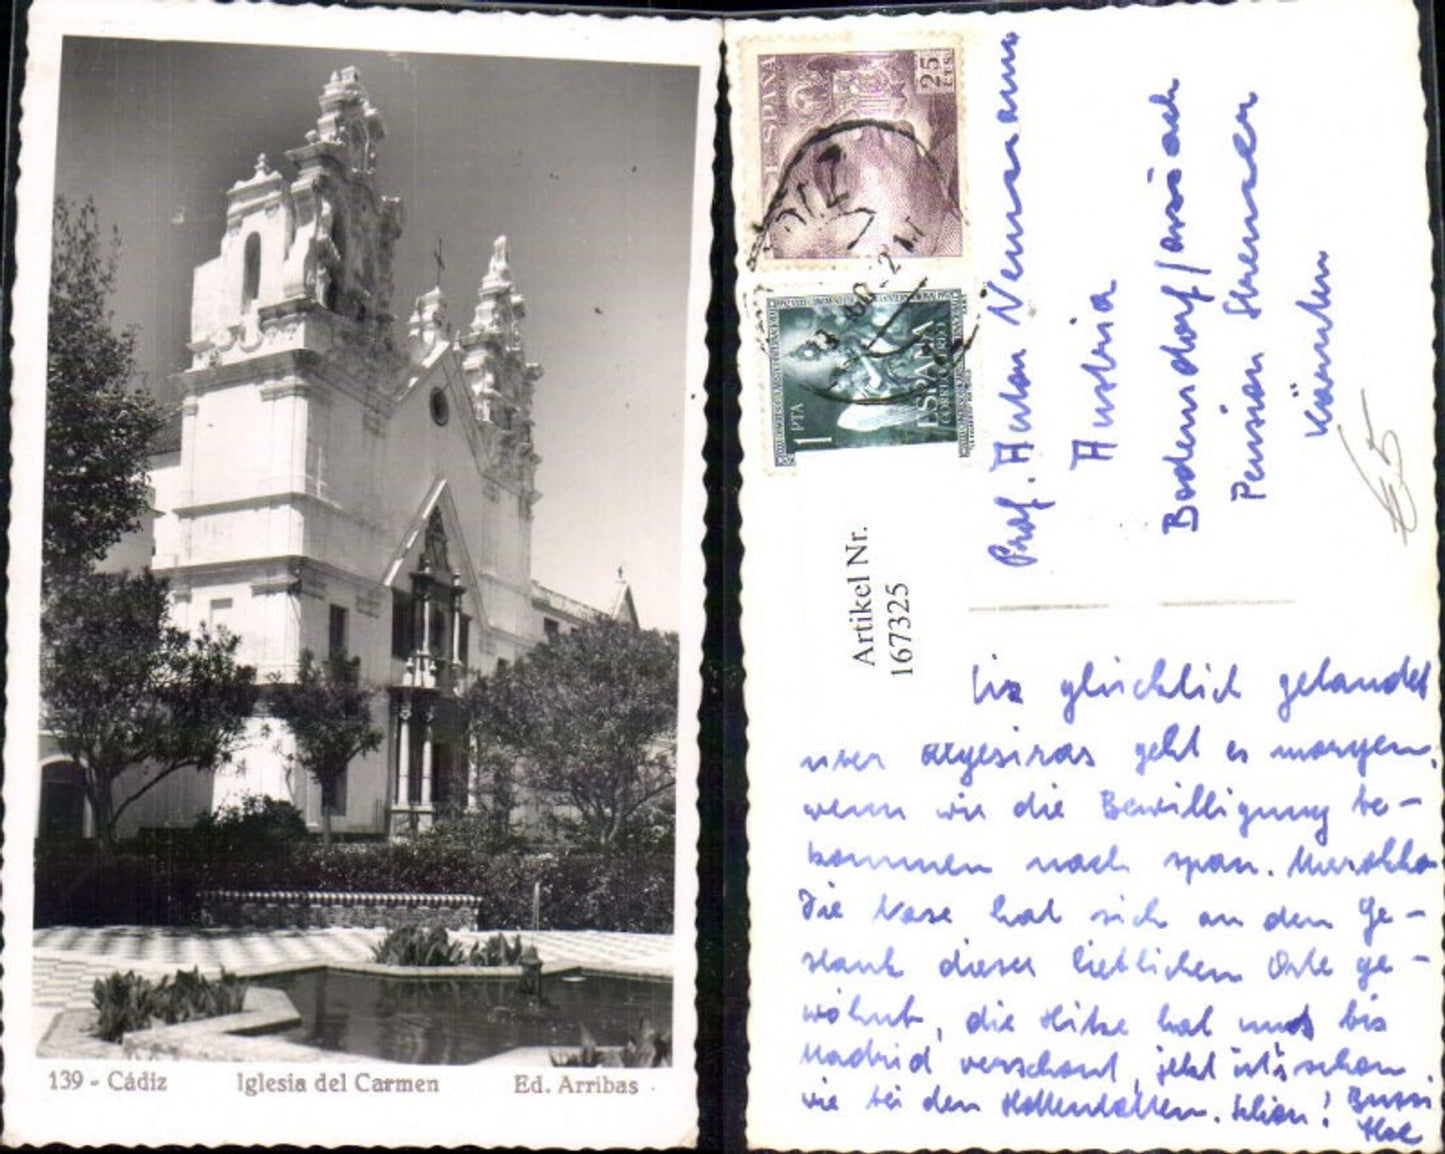 139 - Cádiz Iglesia del Carmen Ed. Arribas
ESPAÑA
25 CTS
1 PTA
ESPAÑA
CORREO
Artikel Nr.
167325
Prof. Anton Neumann
Austria
Bodensdorf/Ossiach
Pension
Kärnten
glücklich gelandet
über Algesiras geht es morgen,
wenn wir die Bewilligung be-
kommen nach span. Marokko
Die Nase hat sich an den Ge-
stank dieser lieblichen Orte ge-
wöhnt, die Hitze hat uns bis
Madrid verschont, jetzt ist's schon
wie bei den Hottentotten. Bussi